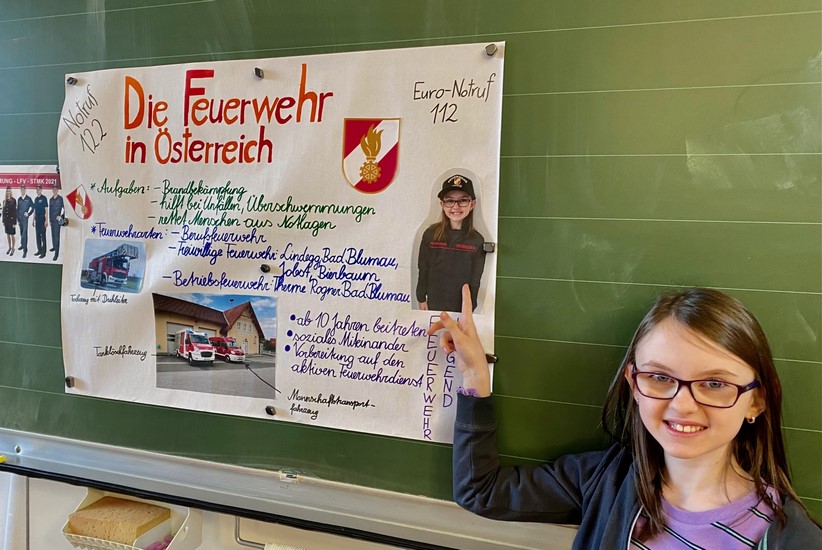 Notruf
122
Die Feuerwehr
in Österreich
Euro-Notruf
112
RUNG - LFV - STMK 2021
* Aufgaben: - Brandbekämpfung
- hilft bei Unfällen, Überschwemmungen
- rettet Menschen aus Notlagen
* Feuerwehrarten: - Berufsfeuerwehr
- Freiwillige Feuerwehr: Lindegg, Bad Blumau,
Jobst, Bierbaum
- Betriebsfeuerwehr: Therme Rogner Bad Blumau
mit Drehleiter
Tanklöschfahrzeug
• ab 10 Jahren beitreten
• soziales Miteinander
• Vorbereitung auf den
aktiven Feuerwehrdienst
Mannschaftstransport-
fahrzeug
FEUERWEHR
JUGEND